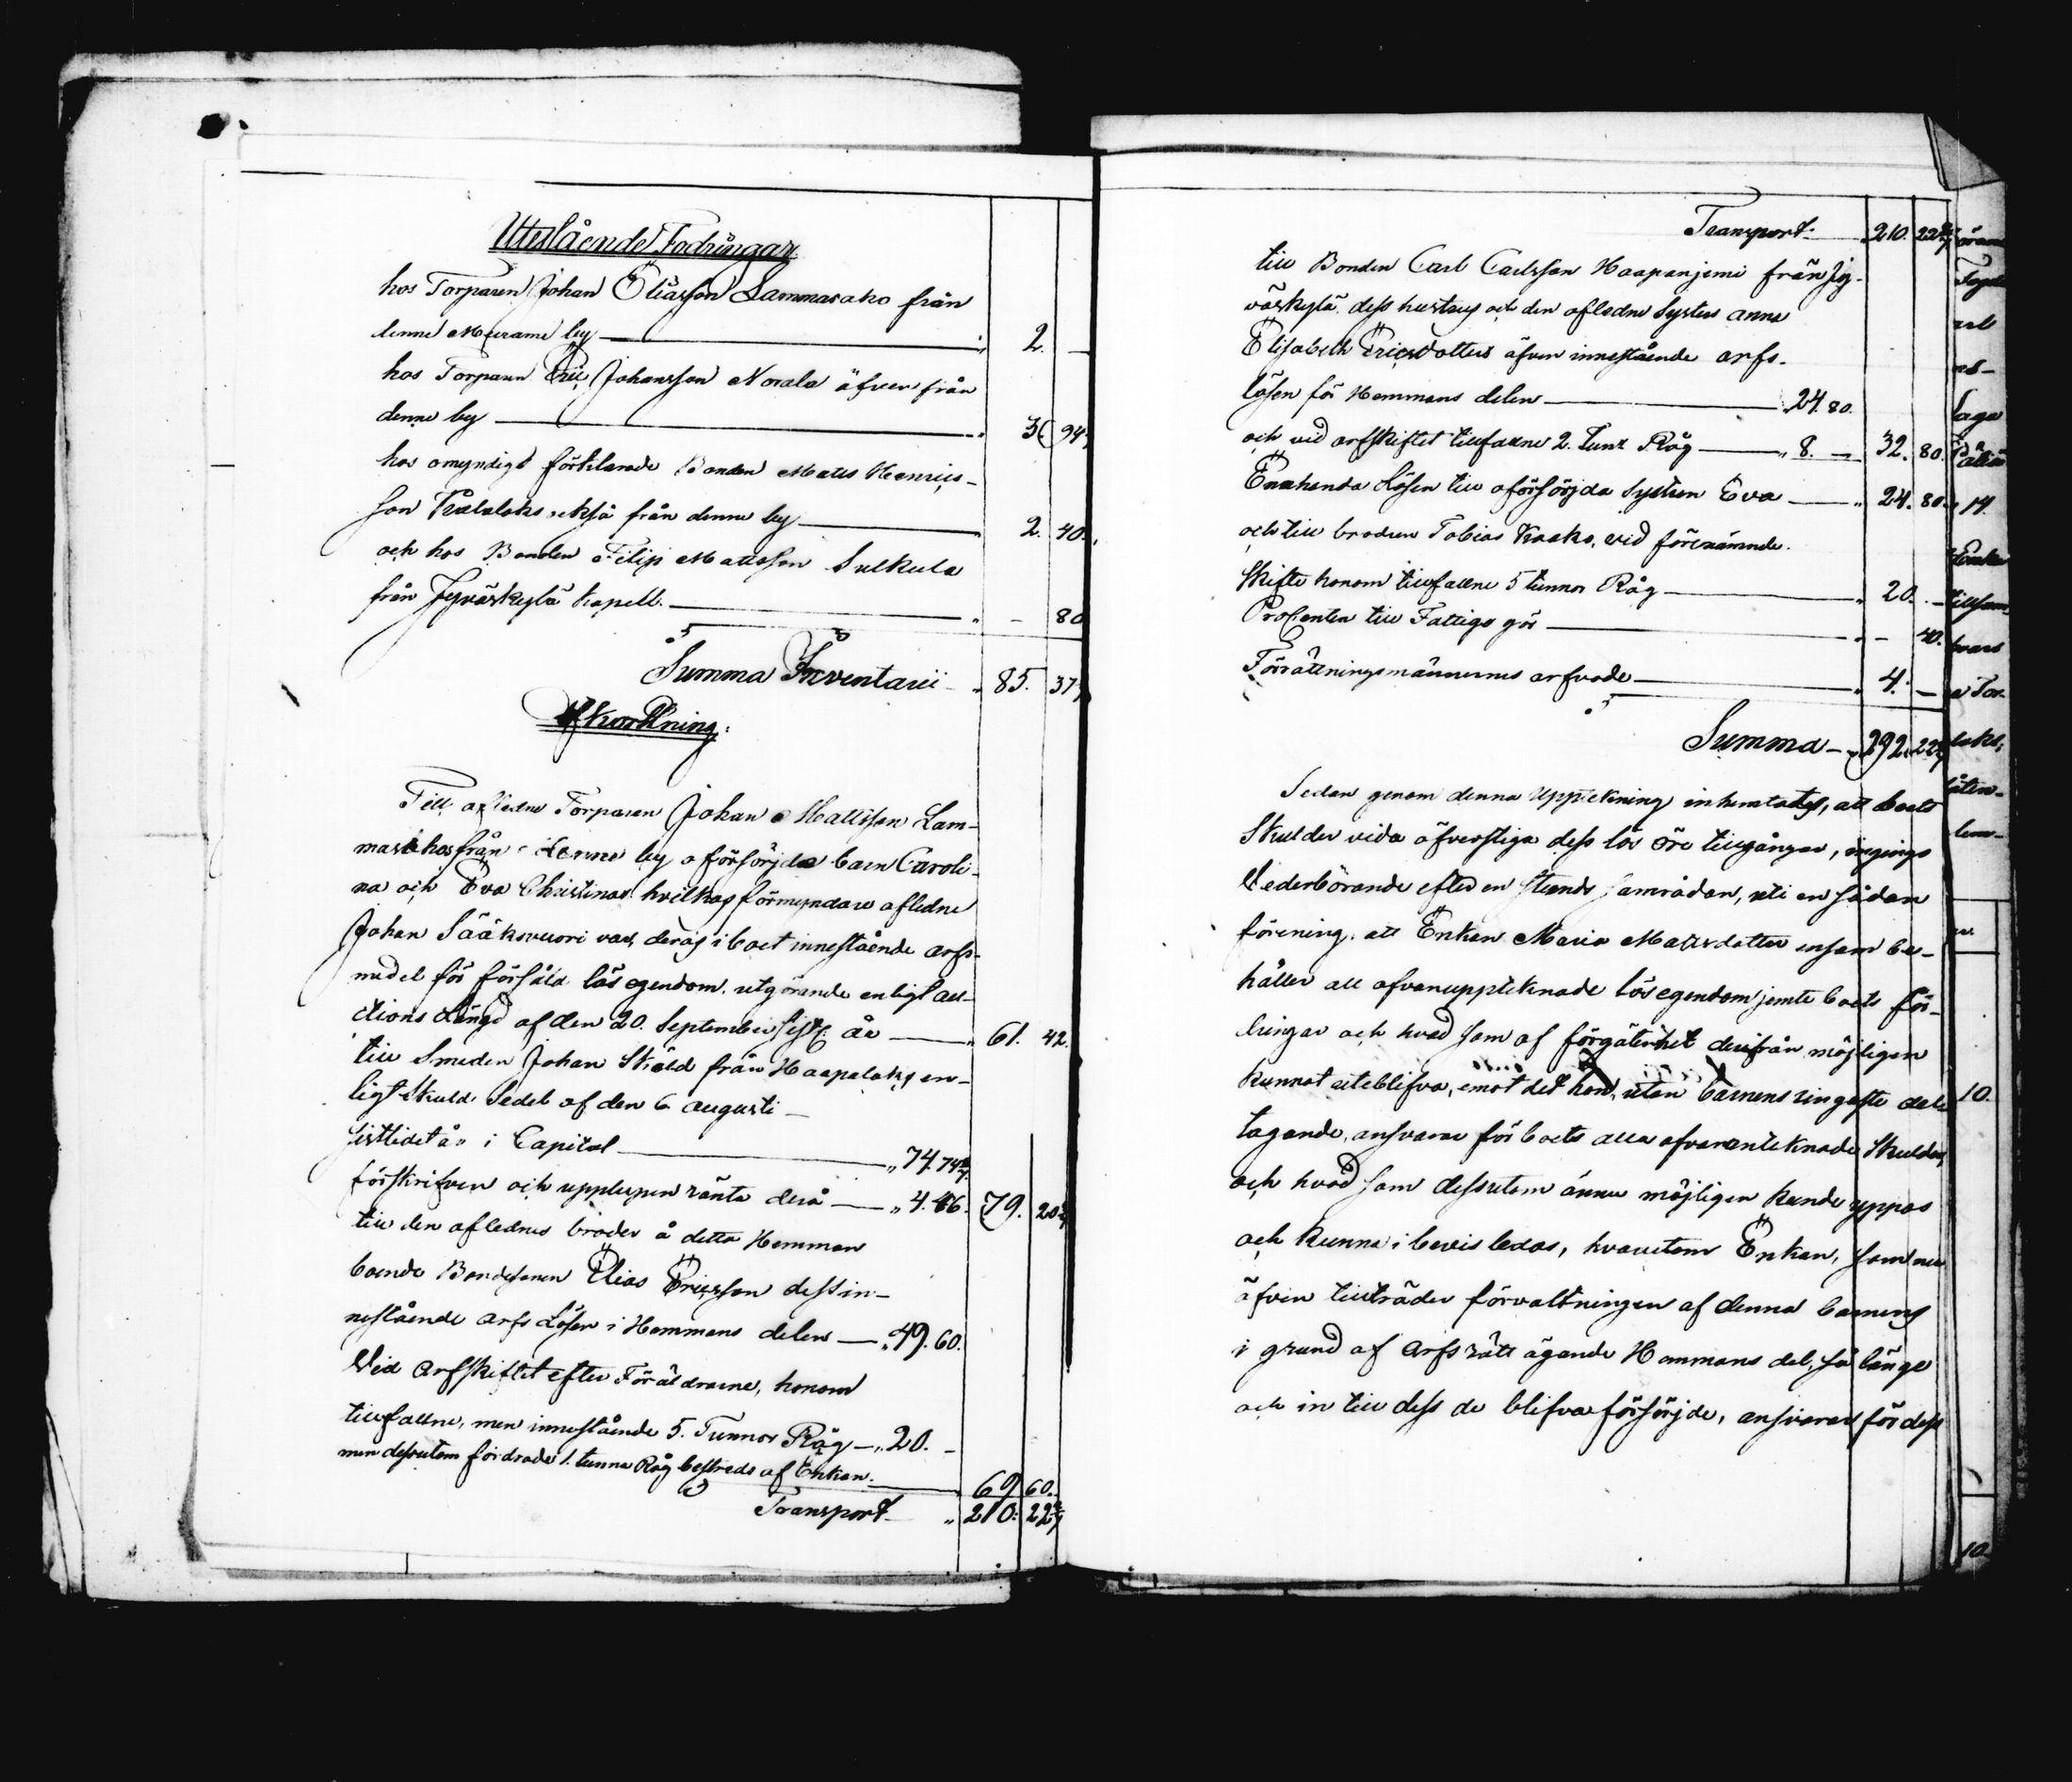 Utestående Fodringar
hos Torparen Johan Eliasson Lammasaho från
denne Muurame by „ 2. —
hos Torparen Eric Johansson Norala äfven från
denne by „ 3. 94
hos omyndigt förklarade Bonden Matts Henrics-
son också från denne by 2. 40.
och hos Bonden Filip Mattsson Sulkula
från Jyväskylä Kapell. „ — 80
Summa Inventarii „ 85. 37
Afkortning:
Till aflednе Torparen Johan Mattsson Lam-
masahos från denne by oförsörjda barn Caroli-
na och Eva Christinas hvilkas förmyndare afledne
Johan Sääksvuori var, deras i boet innestående arfs-
medel för försåld lösegendom, utgörande enligt auc-
tions Längd af den 20. September sistl. år „ 61. 42.
till Smeden Johan Sköld från Haapalaks en-
ligt Skuld Sedel af den 6 augusti
sistlidet år i Capital „ 74. 74
förskrifven och upplupen ränta derå „ 4. 46. 79. 20
till den aflednes broder å detta Hemman
boende Bondesonen Elias Ericsson dess in-
nestående arfs Lösen i Hemmans delen „ 49. 60.
Vid arfskiftet efter Föräldrarne, honom
tillfallne, men innestående 5. Tunnor Råg „ 20. —
men dessutom fordrade 1. tunna Råg bestreds af Enkan. 69 60.
Transport „ 210. 22
Transport 210. 22
till Bonden Carl Carlsson Haapanjemi från Jy-
väskylä dess hustrus och den aflednes Systers Anna
Elisabeth Ericsdotters äfven innestående arfs-
lösen för Hemmans delen 24. 80.
och vid arfskiftet tillfallne 2. Tunr Råg „ 8. — 32. 80.
Enahanda Lösen till oförsörjda Systern Eva „ 24. 80
och till brodren Tobias Kaako, vid förenämnde
skifte honom tillfallne 5 tunnor Råg „ 20. —
ProCenten till Fattige gör „ — 40.
Förrättningsmännernes arfvode „ 4. —
Summa „ 292. 22
Sedan genom denna Uppteckning inhemtades, att boets
Skulder vida öfverstiga dess lös öre tillgångar, ingingo
Vederbörande efter en stunds samrådan, uti en sådan
förening, att Enkan Maria Mattsdotter ensam be-
håller all ofvanupptecknade lösegendom jemte boets för-
dringar och hvad som af förgätenhet derifrån möjligen
kunnat uteblifva, emot det hon, utan barnens ringaste del-
tagande, ansvarar för boets alla ofvanantecknade Skulder,
och hvad som dessutom ännu möjligen kunde yppas
och kunna i bevis ledas, hvarutom Enkan, som nu
äfven tillträder förvaltningen af denna barnens
i grund af Arfs rätt ägande Hemmans del, så länge
och in till dess de blifva försörjde, ansvarar för dess